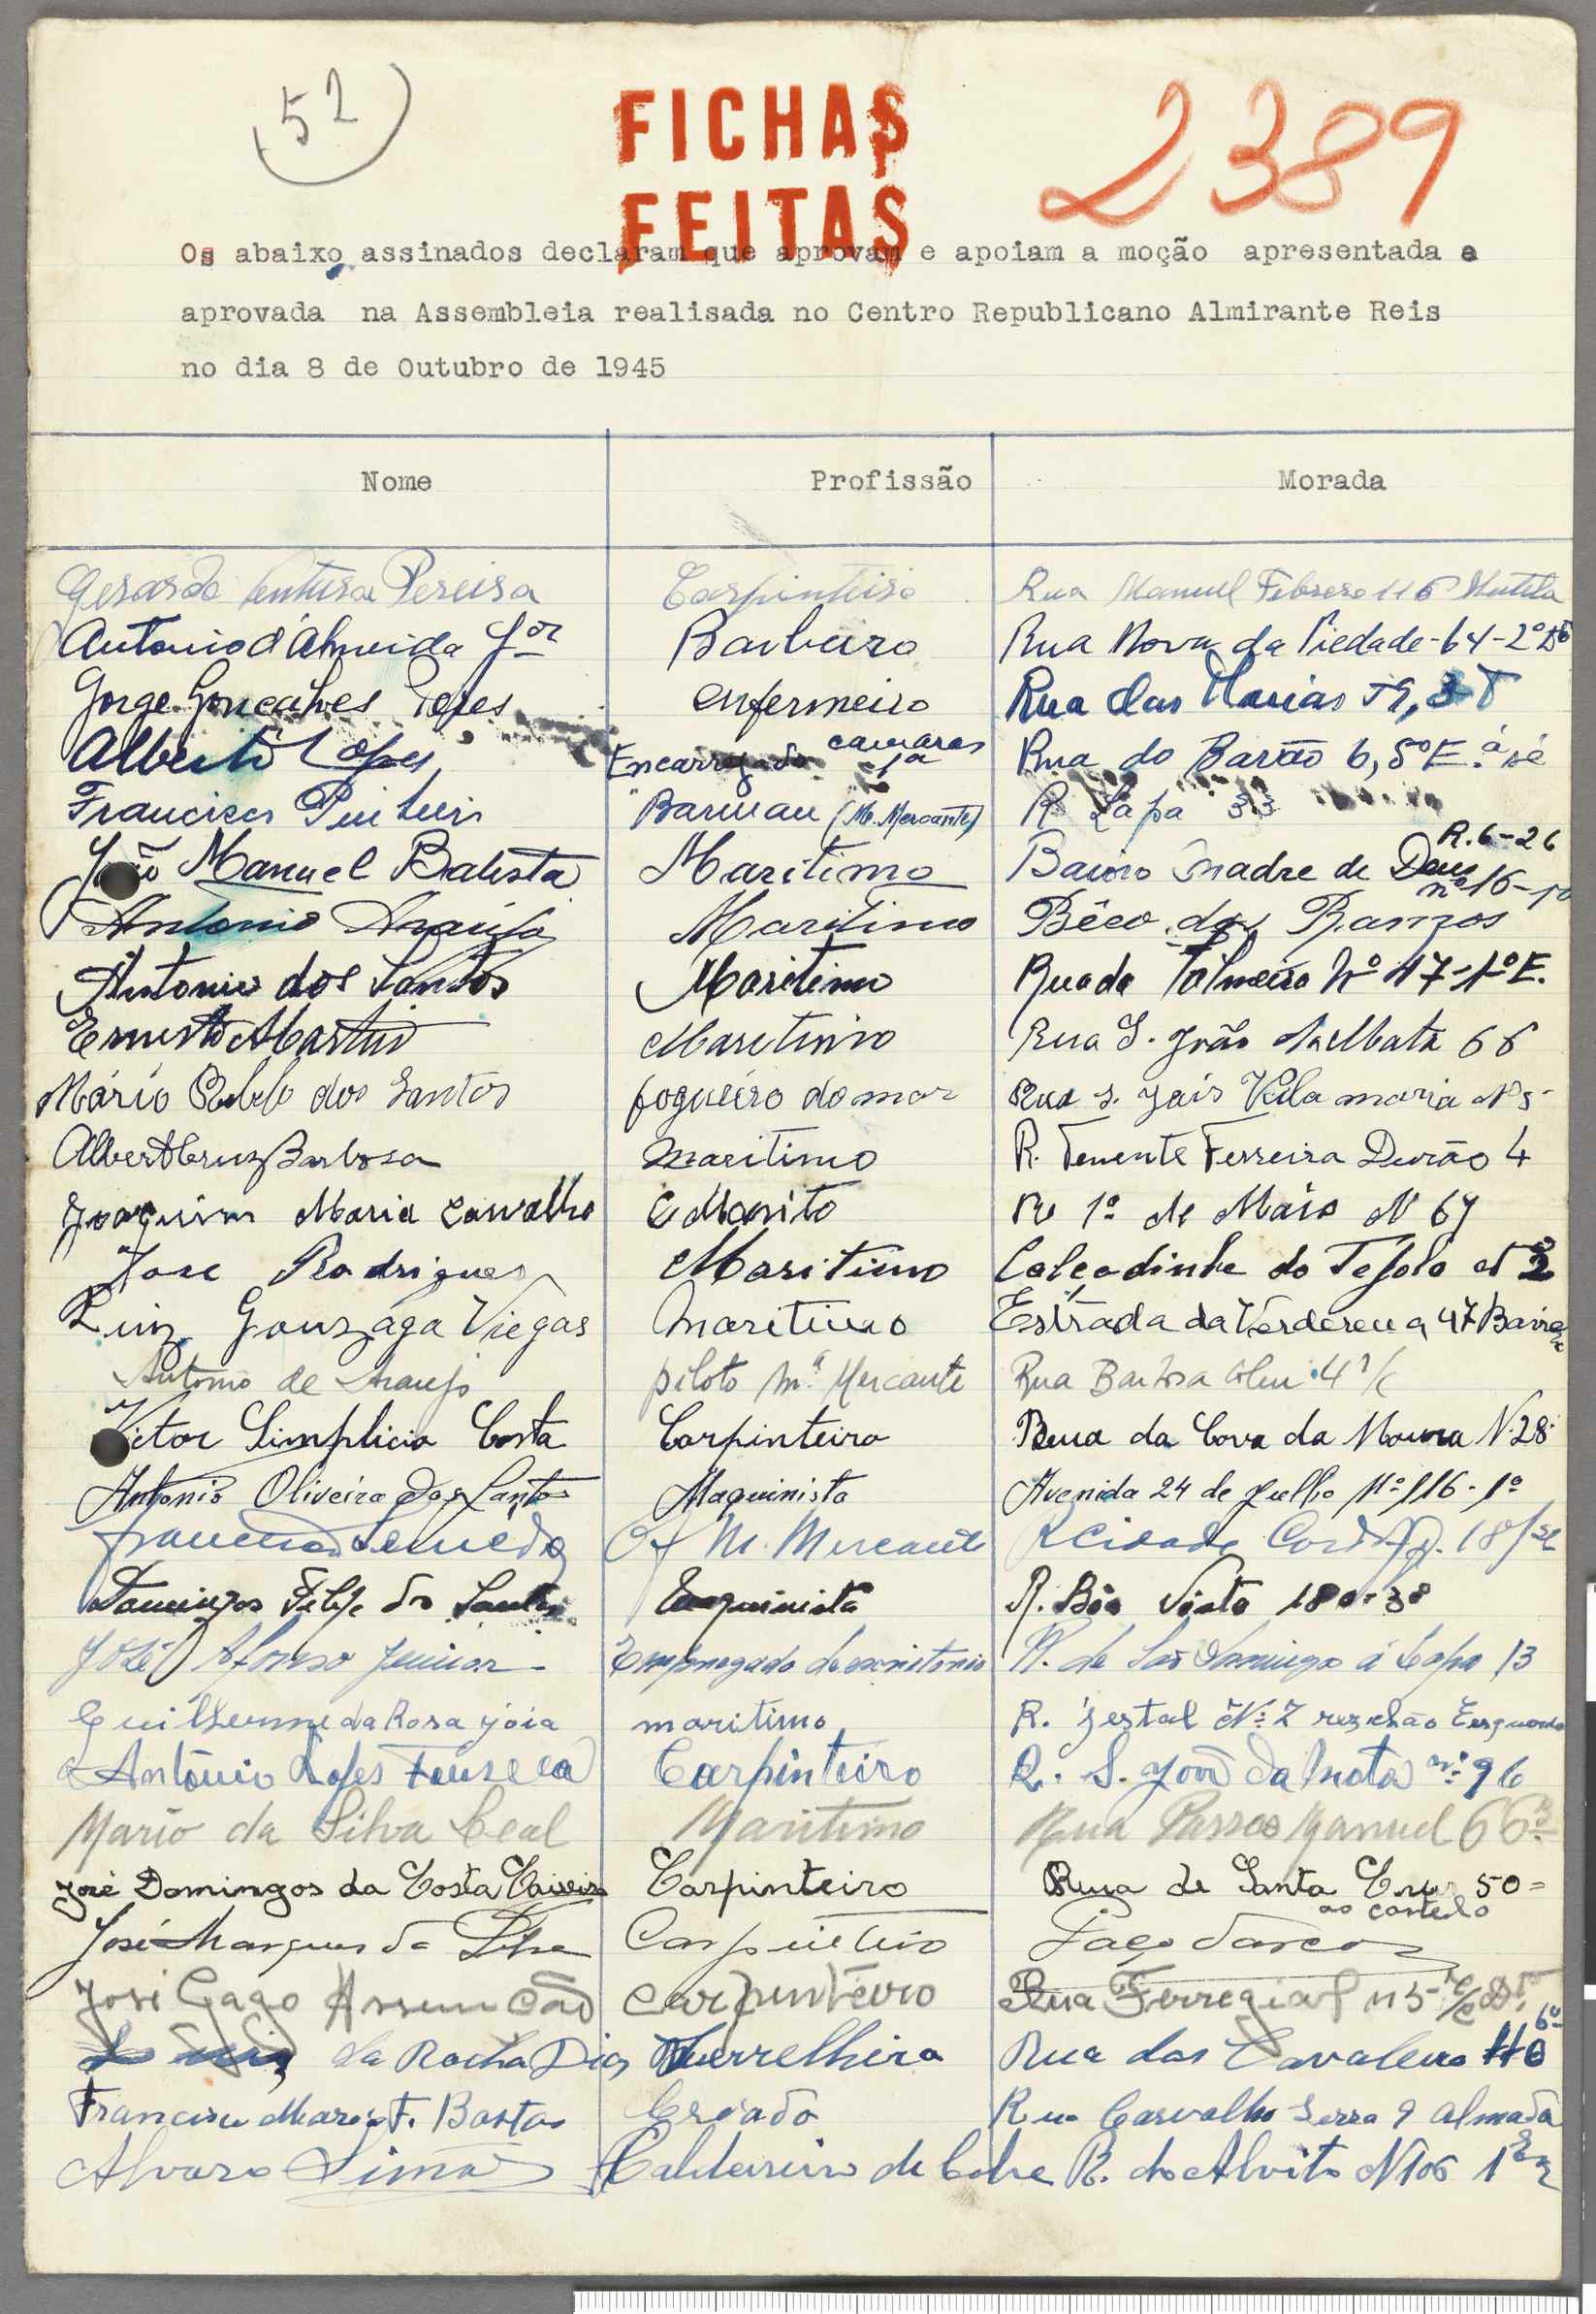 52
FICHAS
FEITAS
2389
Os abaixo assinados declaram que aprovam e apoiam a moção apresentada e
aprovada na Assembleia realisada no Centro Republicano Almirante Reis
no dia 8 de Outubro de 1945
Nome Profissão Morada
Gerardo Ventura Pereira Carpinteiro Rua Manuel Febrero 116 Mutela
Antonio d'Almeida Jor Barbeiro Rua Nova da Piedade-64-2º Dto
Jorge Gonçalves enfermeiro Rua das
Alberto Lopes Encarregado camaras 1ª Rua do Barão 6, 5º E. á sé
Francisco Barman (M. Mercante) R Lapa 33
João Manuel Batista Maritimo Bairro Madre de Deus R. 6-26
Antonio Araujo Maritimo Bêco dos Ramos nº 16-
Antonio dos Santos Maritimo Rua da Palmeira Nº 47-1º E.
Ernesto Martins Maritimo Rua S. João da Mata 66
Mário Rebelo dos Santos fogueiro do mar Rua s. Vila maria Nº 5
Alberto Cruz Barbosa maritimo R. Tenente Ferreira Durão 4
Joaquim Maria Carvalho R 1º de Maio N 67
Jose Rodrigues Maritimo Calçadinha do Tejolo Nº 2
Luiz Gonzaga Viegas maritimo Estrada da 47
Antonio de Araujo piloto Mª Mercante Rua Barbosa 4 r/c
Victor Simplicio Costa Carpinteiro Rua da Cova da Moura N. 28
Antonio Oliveira dos Santos Maquinista Avenida 24 de Julho Nº 116-1º
Francisco Semedo Of M. Mercante R Cidade 18
Domingos Filipe dos Santos R. Bôa Vista 180-3º
José Afonso Junior Empregado de escritorio R. de São Domingos á Lapa 13
Guilherme da Rosa jóia maritimo R.
António Lopes Fonseca Carpinteiro R. S. João da Mata nº 96
Mario da Silva Leal Maritimo Rua Passos Manuel 66
José Domingos da Costa Carpinteiro Rua de Santa Cruz 50=
ao castelo
José Marques da Silva Carpinteiro Paço Darcos
José Gago Assumcão carpinteiro Rua Ferregial n 5 r/c Dt.
da Rocha Dias Serrelheiro Rua dos Cavaleiros
Francisco Maria F. Bastos Creado Rua Carvalho Serra 9 Almada
Alvaro Lima Caldeireiro de Cobre R. do Alvito N 106 1